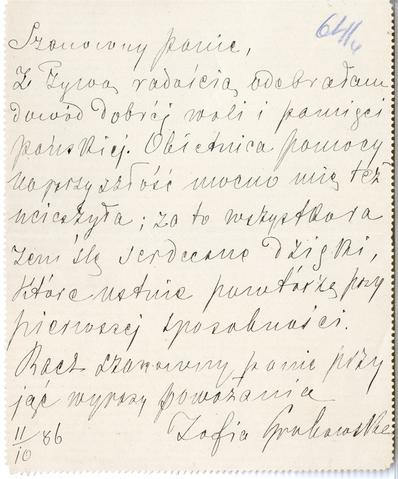 64/4
Szanowny panie,
Z żywą radością odebrałam
dowód dobréj woli i pamięci
pańskiej. Obietnica pomocy
na przyszłość mocno mię też
ucieszyła; za to wszystko ra
zem ślę serdeczne dzięki,
które ustnie powtórzę przy
pierwszej sposobności.
Racz szanowny panie przy
jąć wyrazy poważania
11/10 86
Zofia Grabowska